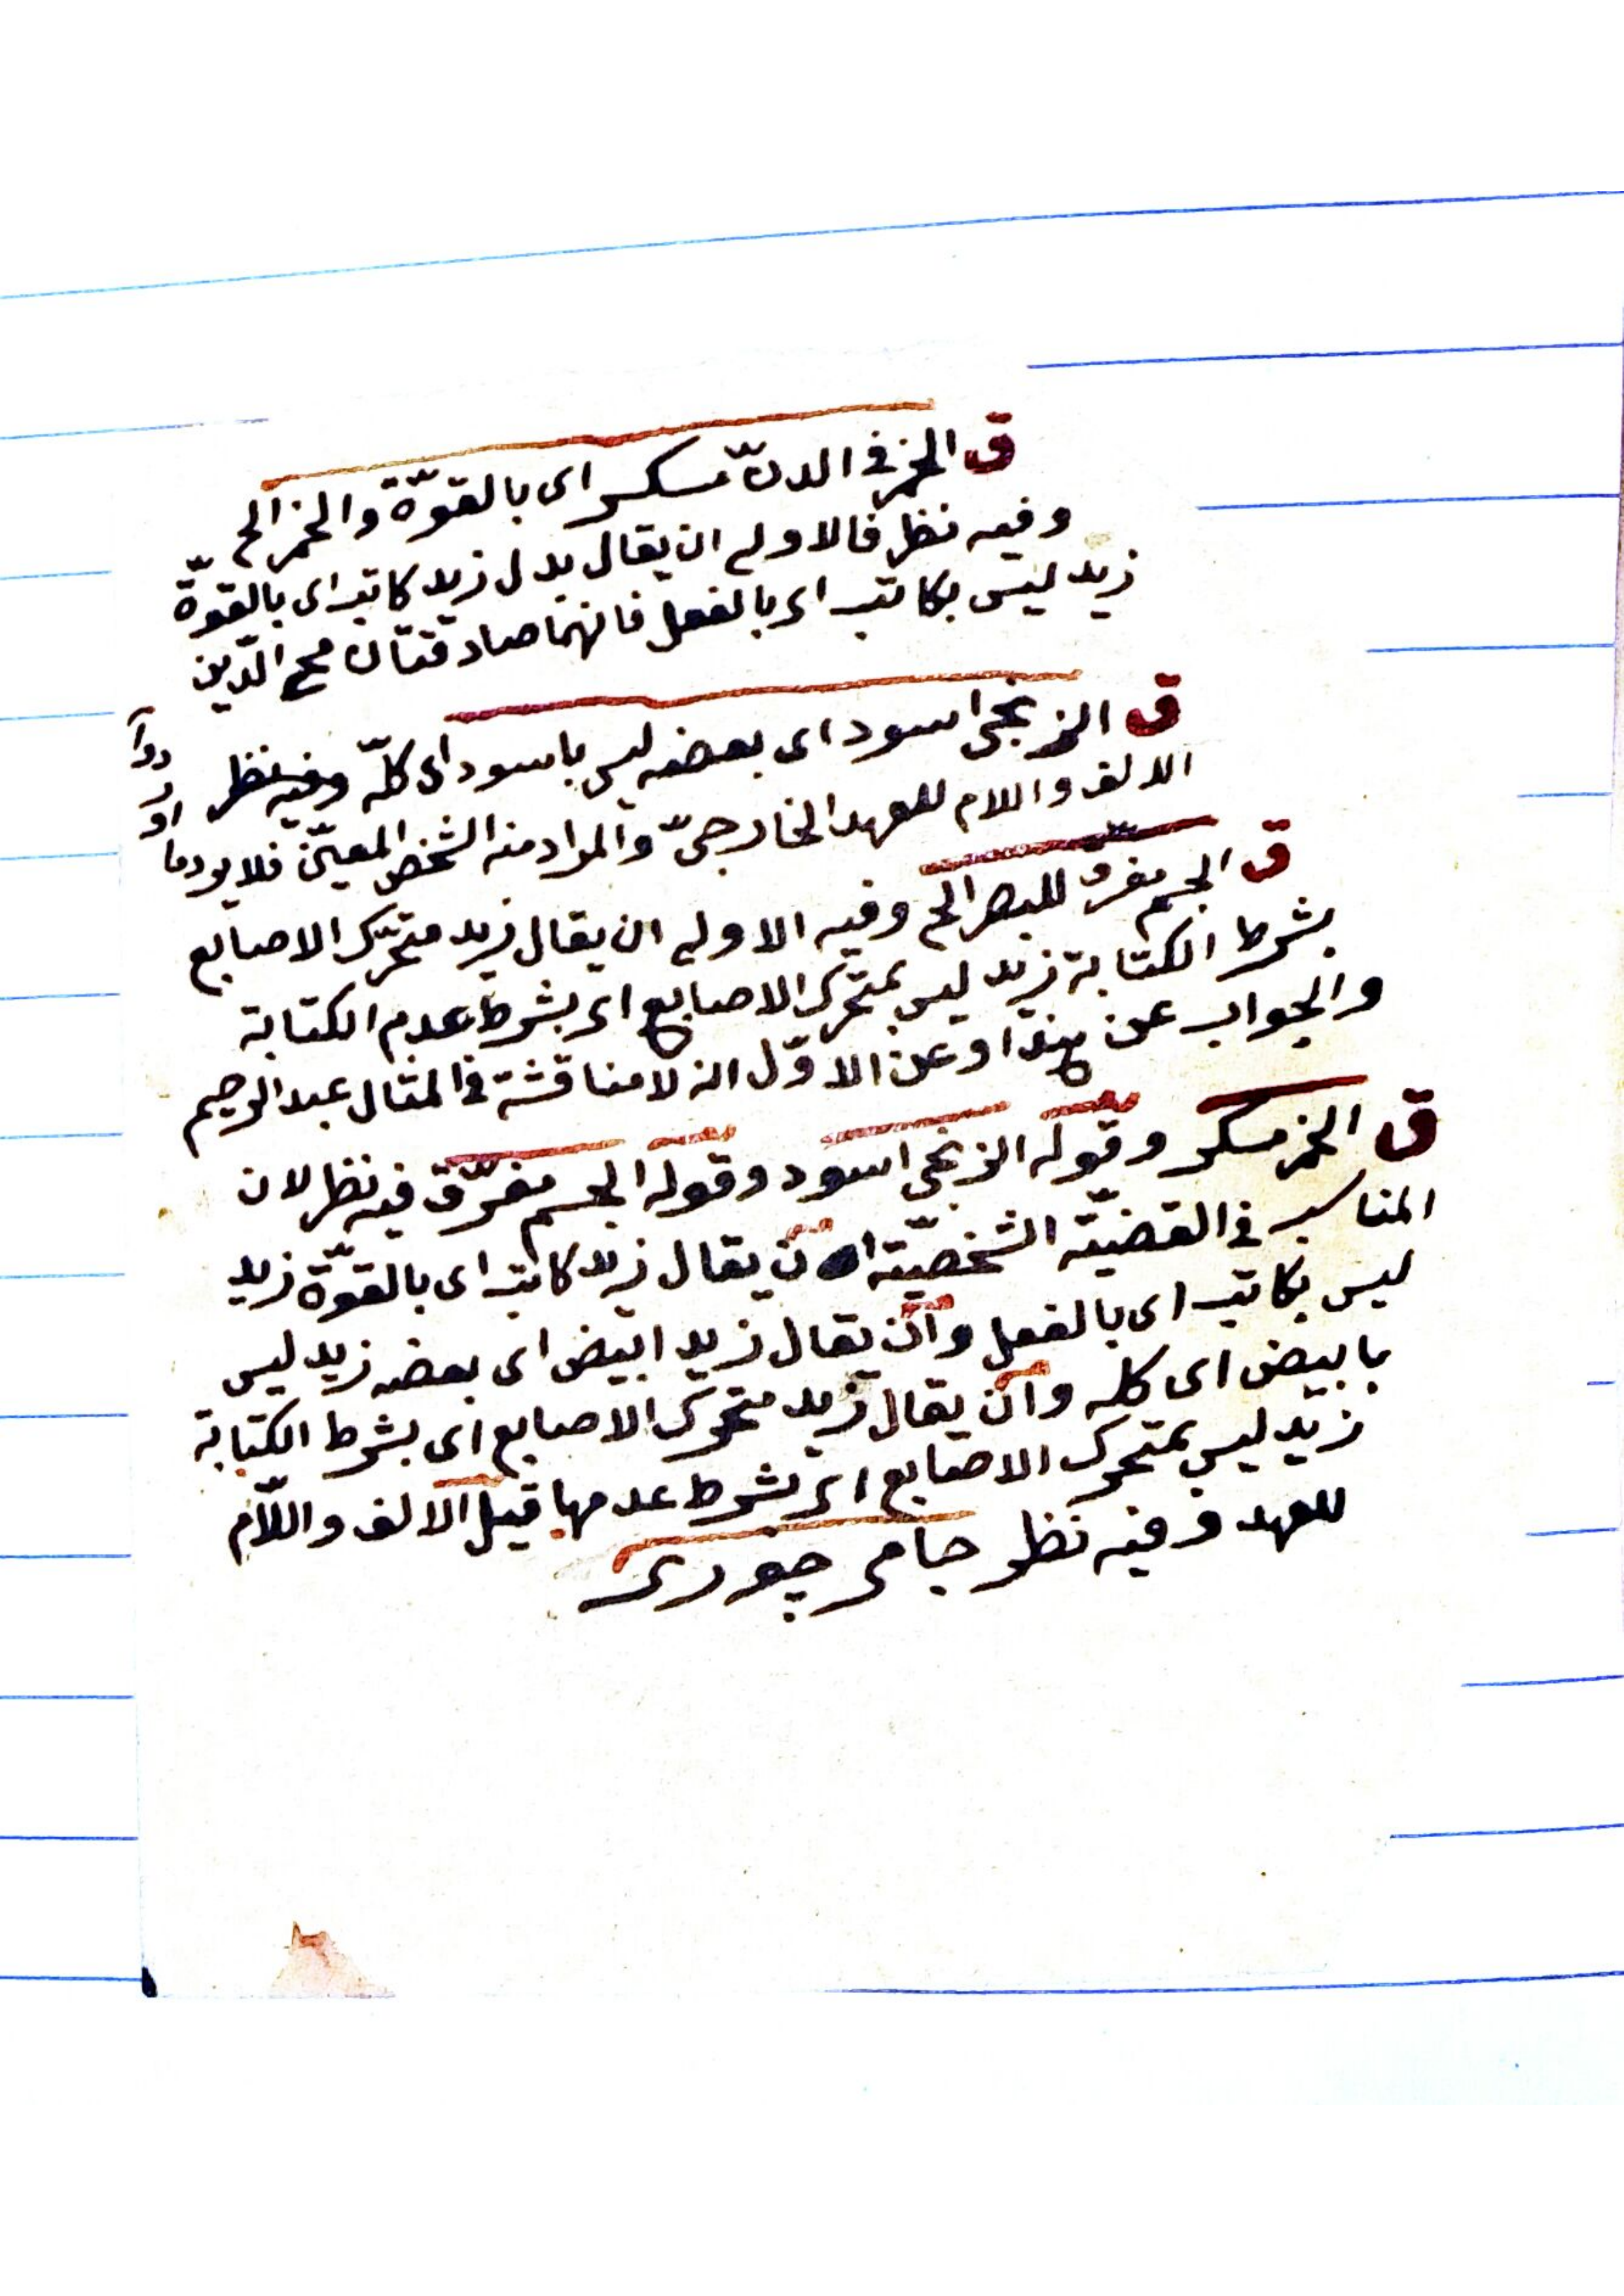 ق الخمر فى الدنّ مسكر اى بالقوّة والخمر الخ
وفيه نظر فالاولى ان يقال بدل زيد كاتب اى بالقوّة
زيد ليس بكاتب اى بالفعل فانهما صادقتان محى الدّين
ق الزنجى اسود اى بعضه ليس باسود اى كلّه وفيه نظر
الالف واللام للعهد الخارجىّ والمراد منه الشخص المعيّن فلا يرد ما
ق الجسم مفرق للبصر الخ وفيه الاولى ان يقال زيد متحرّك الاصابع
بشرط الكتابة زيد ليس بمتحرك الاصابع اى بشرط عدم الكتابة
والجواب عن هذا وعن الاوّل انه لا مناقشة فى المثال عبد الرحيم
ق الخمر مسكر وقوله الزنجى اسود وقوله الجسم مفرّق فيه نظر لان
المناسب فى القضيّة الشخصيّة ان يقال زيد كاتب اى بالقوّة زيد
ليس بكاتب اى بالفعل وان يقال زيد ابيض اى بعضه زيد ليس
بابيض اى كله وان يقال زيد متحرك الاصابع اى بشرط الكتابة
زيد ليس بمتحرك الاصابع اى بشرط عدمها قيل الالف واللّام
للعهد وفيه نظر جامى چورى